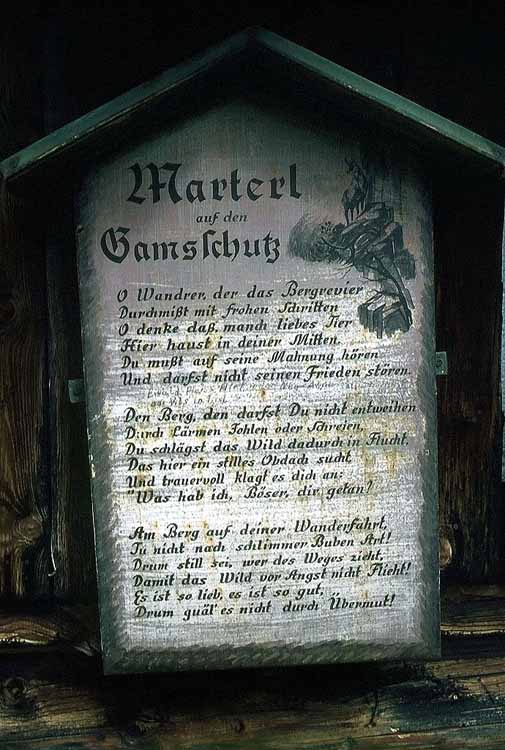 Marterl
auf den
Gamsschutz
O Wandrer, der das Bergrevier
Durchmißt mit frohen Schritten
O denke daß, manch liebes Tier
Hier haust in deiner Mitten.
Du mußt auf seine Mahnung hören
Und darfst nicht seinen Frieden stören.
Den Berg, den darfst Du nicht entweihen
Durch Lärmen Johlen oder Schreien,
Du schlägst das Wild dadurch in Flucht,
Das hier ein stilles Obdach sucht
Und trauervoll klagt es dich an:
"Was hab ich, Böser, dir getan?
Am Berg auf deiner Wanderfahrt,
Tu nicht nach schlimmer Buben Art!
Drum still sei, wer des Weges zieht,
Damit das Wild vor Angst nicht flieht!
Es ist so lieb, es ist so gut,
Drum quäl' es nicht durch Übermut!